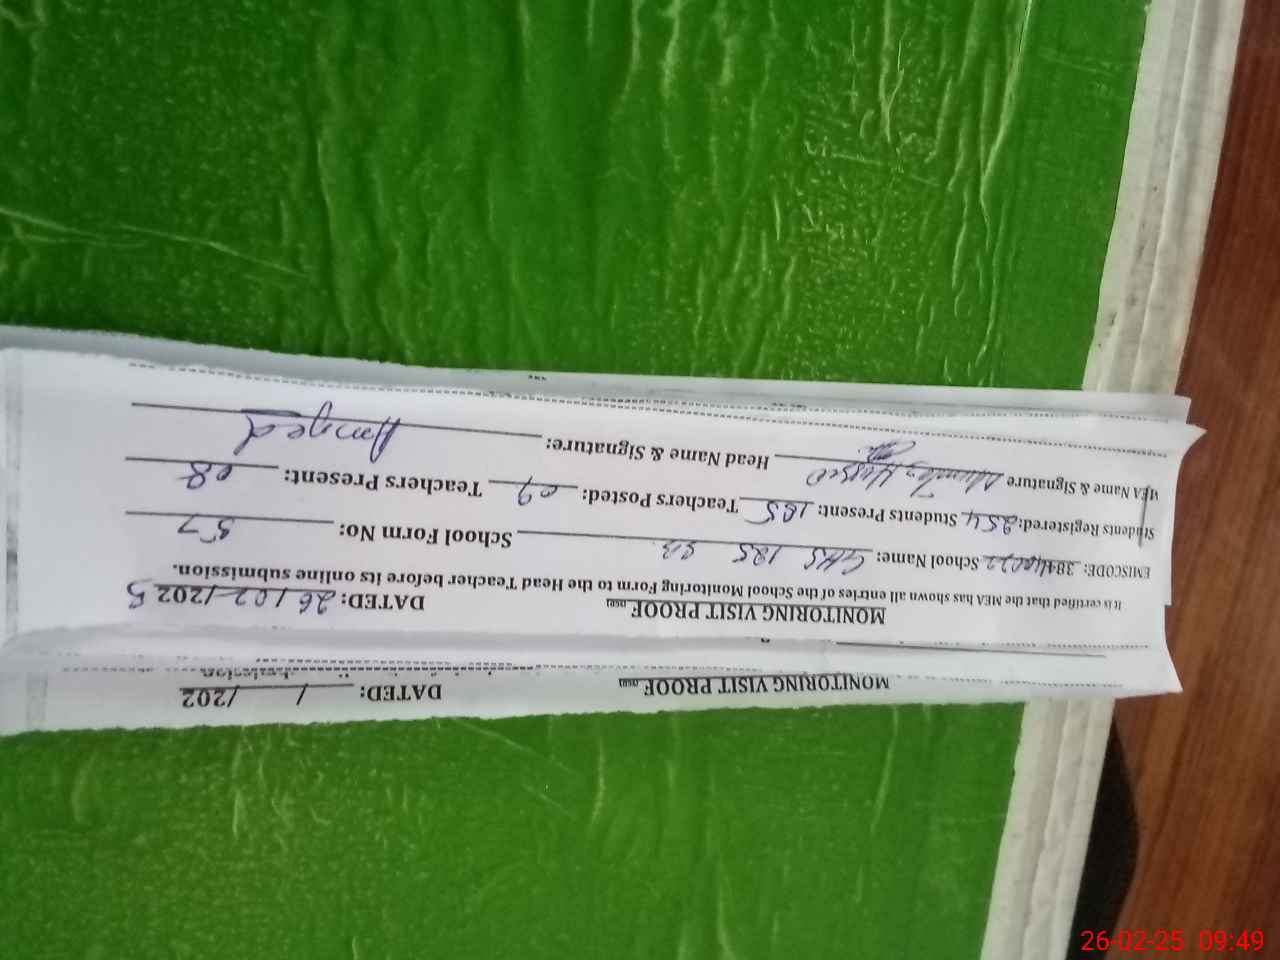 MONITORING VISIT PROOF DATED: 26/02/2025
It is certified that the MEA has shown all entries of the School Monitoring Form to the Head Teacher before its online submission.
EMISCODE: School Name: GHS 125 SB School Form No: 57
Students Registered: 254 Students Present: 185 Teachers Posted: 09 Teachers Present: 08
MEA Name & Signature Head Name & Signature: Amjed
MONITORING VISIT PROOF DATED: / /202
26-02-25 09:49